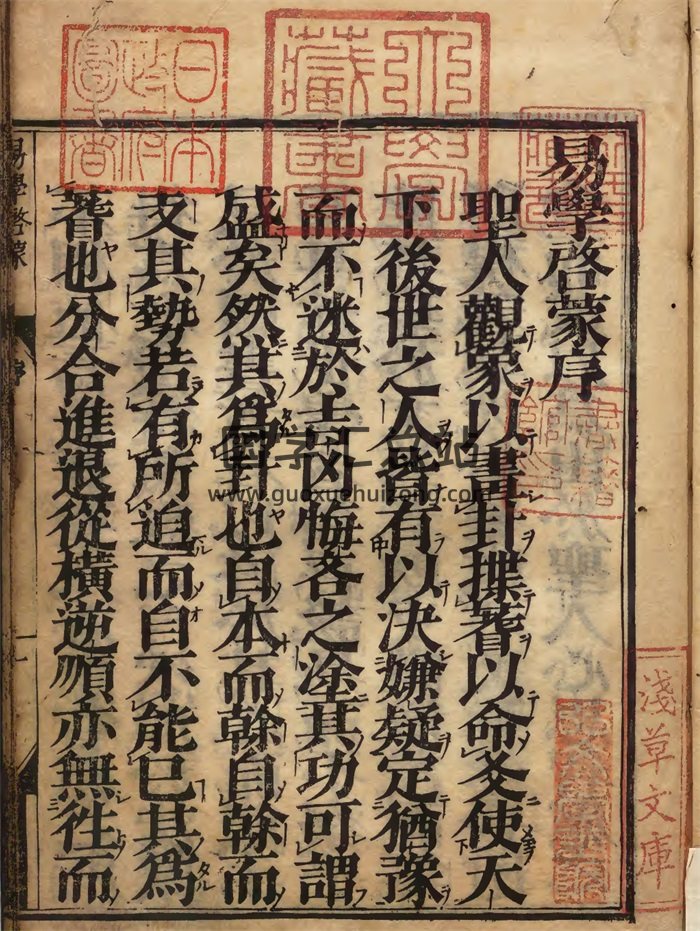 易學啓蒙序
聖人觀象以畫卦揲蓍以命爻使天
下後世之人皆有以決嫌疑定猶豫
而不迷於吉凶悔吝之塗其功可謂
盛矣然其爲卦也自本而榦自榦而
支其勢若有所迫而自不能已其爲
蓍也分合進退從橫逆順亦無往而
易學啓蒙 序
日本政府圖書
淺草文庫
www.guoxuehuizong.com